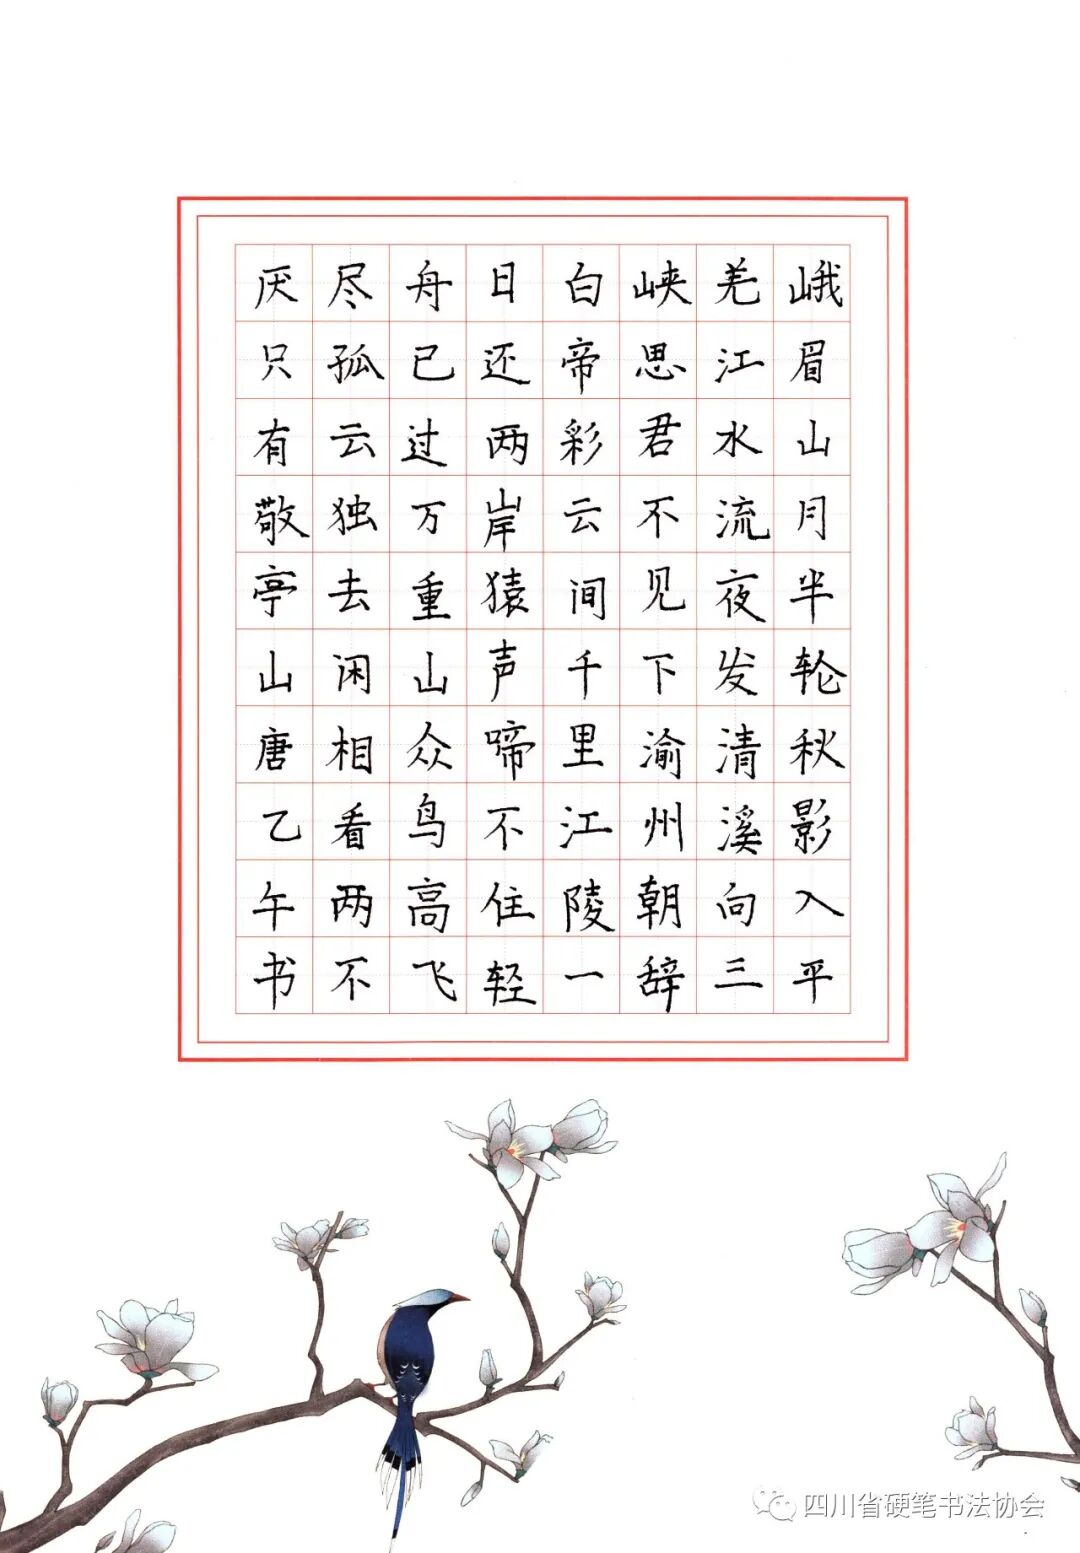 峨眉山月半轮秋影入平
羌江水流夜发清溪向三
峡思君不见下渝州朝辞
白帝彩云间千里江陵一
日还两岸猿声啼不住轻
舟已过万重山众鸟高飞
尽孤云独去闲相看两不
厌只有敬亭山唐乙午书
四川省硬笔书法协会